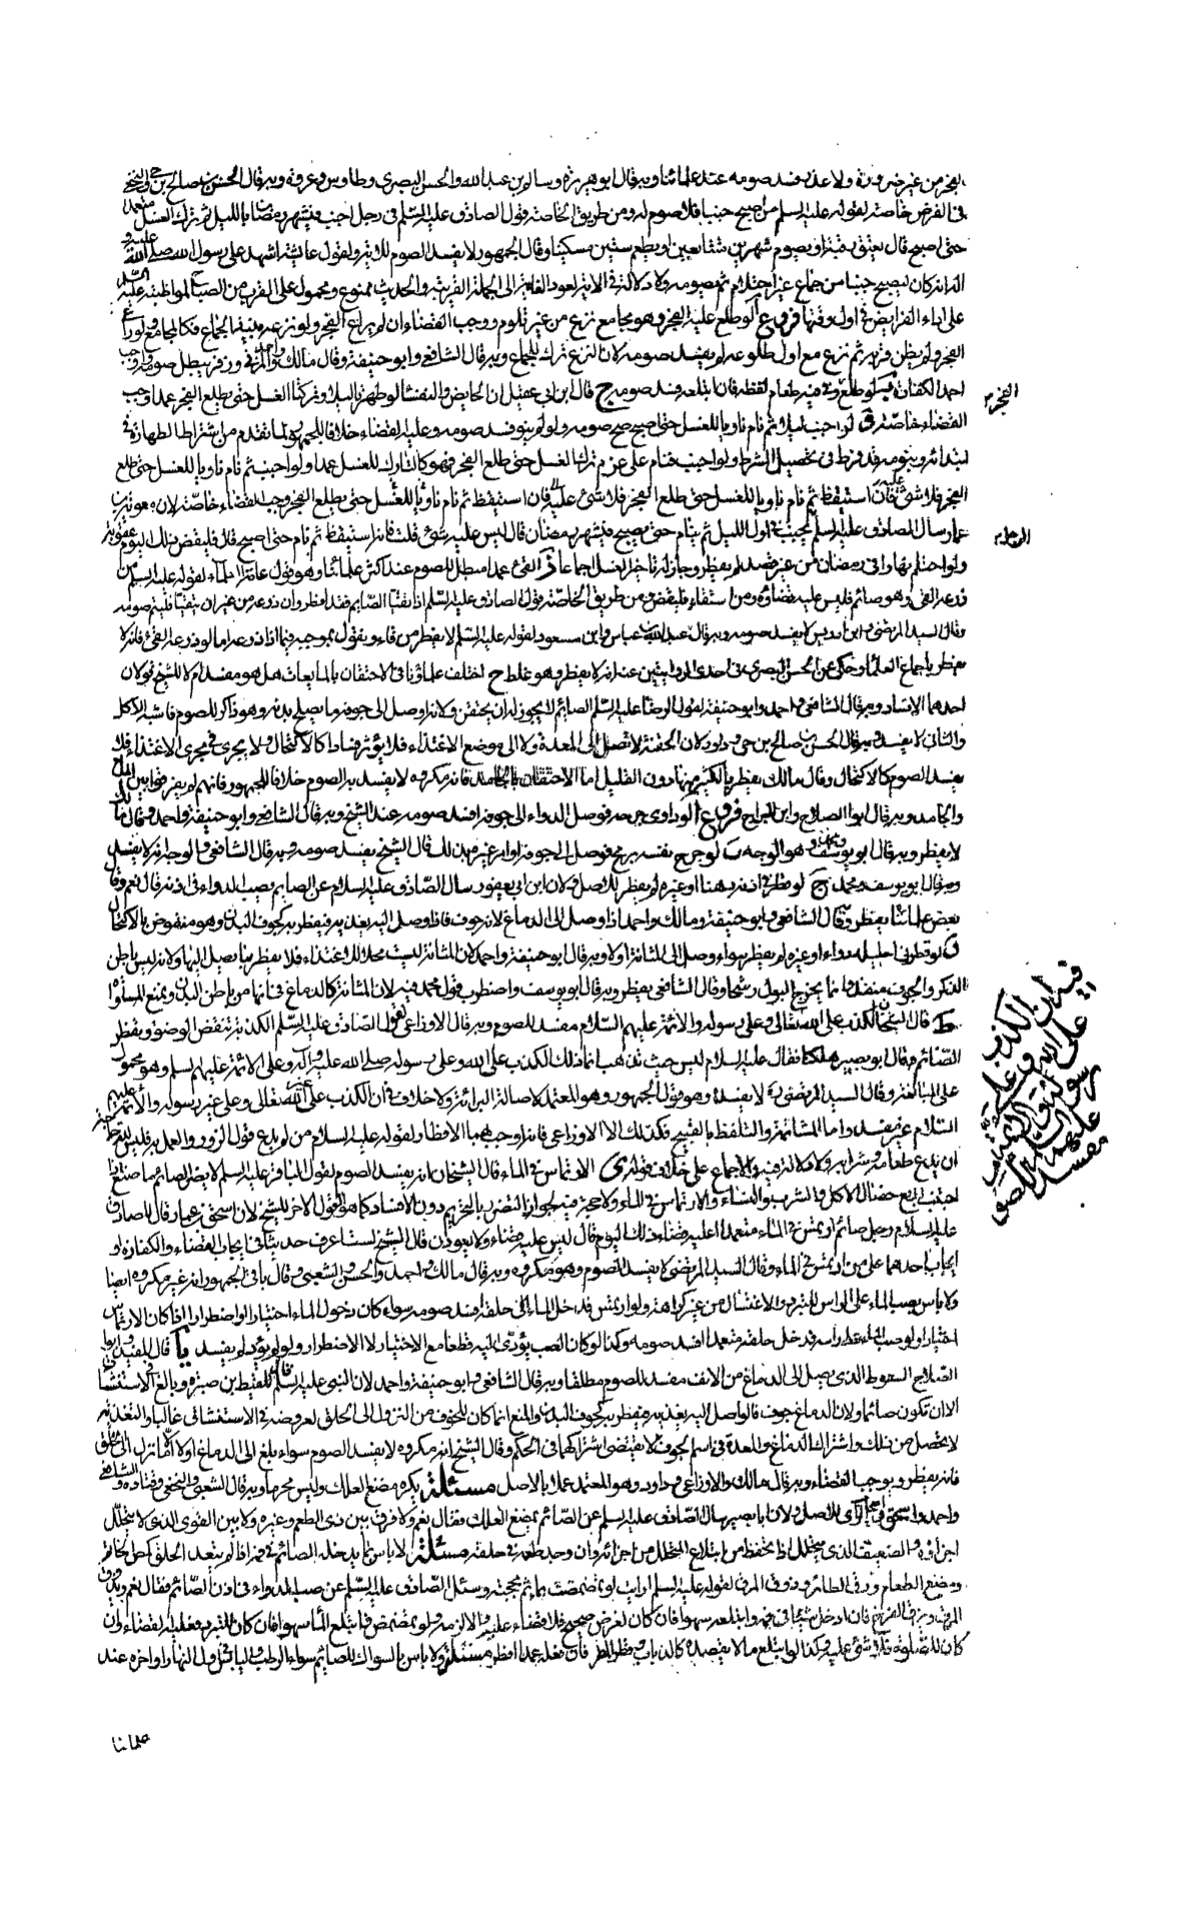 الفجر من غير ضرورة ولا عذر يفسد صومه عند علمائنا وبه قال ابو هريرة وسالم بن عبد الله والحسن البصري وطاوس وعروة وبه قال الحسن بن صالح بن حي والنخعي
في الفرض خاصة لقوله عليه السلم من اصبح جنبا فلا صوم له ومن طريق الخاصة قول الصادق عليه السلم في رجل اجنب في شهر رمضان بالليل ثم ترك الغسل متعمدا
حتى اصبح قال يعتق رقبة او يصوم شهرين متتابعين او يطعم ستين مسكينا وقال الجمهور لا يفسد الصوم للاية ولقول عائشة اشهد على رسول الله صلى الله عليه و
اله انه كان ليصبح جنبا من جماع غير احتلام ثم يصومه ولا دلالة في الاية لعود الغاية الى الجملة القريبة والحديث ممنوع ومحمول على القرب من الصباح لمواظبته عليه السلم
على اداء الفرايض في اول وقتها فروع ا لو طلع عليه الفجر وهو مجامع نزع من غير تلوم ووجب القضاء ان لم يراع الفجر ولو نزع بنية الجماع فكالمجامع ولو راعى
الفجر ولم يظن قربه ثم نزع مع اول طلوعه لم يفسد صومه لان النزع ترك للجماع وبه قال الشافعي وابو حنيفة وقال مالك واحمد والمزني وزفر يبطل صومه واوجب
احمد الكفارة ب لو طلع وفي فيه طعام لفظه فان ابتلعه فسد صومه ج قال ابن ابي عقيل ان الحايض والنفساء لو طهرتا ليلا وتركتا الغسل حتى يطلع الفجر عمدا وجب
القضاء خاصة د لو اجنب ليلا ثم نام ناويا للغسل حتى اصبح صح صومه ولو لم ينو فسد صومه وعليه القضاء خلافا للجمهور لما تقدم من اشتراط الطهارة في
ابتدائه وبنومه قد فرط في تحصيل الشرط ولو اجنب فنام على عزم ترك الغسل حتى طلع الفجر فهو كالتارك للغسل عمدا ولو اجنب ثم نام ناويا للغسل حتى طلع
الفجر فلا شئ عليه فان استيقظ ثم نام ناويا للغسل حتى يطلع الفجر وجب القضاء خاصة لان معوية بن
عمار سال الصادق عليه السلم يجنب في اول الليل ثم ينام حتى يصبح في شهر رمضان قال ليس عليه شئ قلت فانه استيقظ ثم نام حتى اصبح قال فليقض ذلك اليوم عقوبة
ولو احتلم نهارا في رمضان من غير قصد لم يفطر وجاز له تاخير الغسل اجماعا ذ القئ عمدا مبطل للصوم عند اكثر علمائنا وهو قول عامة العلماء لقوله عليه السلم من
ذرعه القئ وهو صائم فليس عليه قضاؤه ومن استقاء فليقض ومن طريق الخاصة قول الصادق عليه السلم اذا تقيا الصايم فقد افطر وان ذرعه من غير ان يتقيا فليتم صومه
وقال السيد المرتضى وابن ادريس لا يفسد صومه وبه قال عبد الله بن عباس وابن مسعود لقوله عليه السلم لا يفطر من قاء ويقول بموجبه فيما اذا ذرعه اما لو ذرعه القئ فانه لا
يفطر باجماع العلماء وحكي عن الحسن البصري في احدى الروايتين عنه انه يفطر وهو غلط ح اختلف علماؤنا في الاحتقان بالمايعات هل هو مفسد ام لا للشيخ قولان
احدهما الافساد وبه قال الشافعي واحمد وابو حنيفة لقول الرضا عليه السلم الصائم لا يجوز له ان يحتقن ولانه اوصل الى جوفه ما يصلح بدنه وهو ذاكر للصوم فاشبه الاكل
والثاني لا يفسد وبه قال الحسن بن صالح بن حي وداود لان الحقنة لا تصل الى المعدة ولا الى موضع الاغتذاء فلا يؤثر فسادا كالاكتحال ولا يجري في مجرى الاغتذاء فلا
يفسد الصوم كالاكتحال وقال مالك يفطر بالكثير منها دون القليل اما الاحتقان بالجامد فانه مكروه لا يفسد به الصوم خلافا للجمهور فانهم لم يفرقوا بين المايع
والجامد وبه قال ابو الصلاح وابن البراج فروع ا لو داوى جرحه فوصل الدواء الى جوفه افسد صومه عند الشيخ وبه قال الشافعي وابو حنيفة واحمد وقال مالك
لا يفطر وبه قال ابو يوسف ومحمد وهو الوجه ب لو جرح نفسه برمح فوصل الى جوفه او امر غيره بذلك قال الشيخ يفسد صومه وبه قال الشافعي والوجه انه لا يفسد
وبه قال ابو يوسف ومحمد ج لو قطر في اذنه دهنا او غيره لم يفطر للاصل ولان ابن ابي يعفور سال الصادق عليه السلام عن الصايم يصب الدواء في اذنه قال نعم وقال
بعض علمائنا يفطر وبه قال الشافعي وابو حنيفة ومالك واحمد اذا وصل الى الدماغ لانه جوف فاذا وصل اليه يغذى به فيفطر به كجوف البدن وهو منقوض بالاكتحال
د لو قطر في احليله دواء او غيره لم يفطر سواء وصل الى المثانة او لا وبه قال ابو حنيفة واحمد لان المثانة ليست محلا للاغتذاء فلا يفطر بما يصل اليها ولانه ليس باطن
الذكر والجوف منفذ وانما يخرج البول رشحا وقال الشافعي يفطر وبه قال ابو يوسف واضطرب قول محمد فيه لان المثانة كالدماغ في انها من باطن البدن ويمنع المساواة
ط قال الشيخان الكذب على الله تعالى وعلى رسوله والائمة عليهم السلام مفسد للصوم وبه قال الاوزاعي لقول الصادق عليه السلم الكذبة تنقض الوضوء ويفطر
الصائم وقال ابو بصير هلكنا فقال عليه السلام ليس حيث تذهب انما ذلك الكذب على الله وعلى رسوله صلى الله عليه واله وعلى الائمة عليهم السلم وهو محمول
على المبالغة وقال السيد المرتضى ره لا يفسد وهو قول الجمهور وهو المعتمد لاصالة البرائة ولا خلاف في ان الكذب على غير الله تعالى وعلى غير رسوله والائمة عليهم
السلام غير مفسد واما المشاتمة والتلفظ بالقبيح فكذلك الا الاوزاعي فانه اوجب بهما الافطار لقوله عليه السلام من لم يدع قول الزور والعمل به فليس لله حاجة
ان يدع طعامه وشرابه ولا دلالة فيه والاجماع على خلاف قوله ى الارتماس في الماء قال الشيخان انه يفسد الصوم لقول الباقر عليه السلم لا يضر الصائم ما صنع اذا
اجتنب اربع خصال الاكل والشرب والنساء والارتماس في الماء ولا حجة فيه لجواز التضرر بالتحريم دون الافساد كما هو القول الاخر للشيخ لان اسحق بن عمار قال للصادق
عليه السلام رجل صائم ارتمس في الماء متعمدا اعليه قضاء ذلك اليوم قال ليس عليه قضاء ولا يعودن قال الشيخ لست اعرف حديثا في ايجاب القضاء والكفارة او
ايجاب احدهما على من ارتمس في الماء وقال السيد المرتضى لا يفسد الصوم وهو مكروه وبه قال مالك واحمد والحسن والشعبي وقال باقي الجمهور انه غير مكروه ايضا
ولا باس بصب الماء على الراس للتبرد والاغتسال من غير كراهة ولو ارتمس فدخل الماء الى حلقه افسد صومه سواء كان دخول الماء اختيارا او اضطرارا اذا كان الارتماس
اختيارا ولو صب الماء على راسه فدخل حلقه متعمدا افسد صومه وكذا لو كان الصب يؤدي اليه قطعا مع الاختيار لا الاضطرار ولو لم يؤد لم يفسد يا قال المفيد وابو
الصلاح السعوط الذي يصل الى الدماغ من الانف مفسد للصوم مطلقا وبه قال الشافعي وابو حنيفة واحمد لان النبي عليه السلم قال للقيط بن صبرة وبالغ في الاستنشاق
الا ان تكون صائما ولان الدماغ جوف فالواصل اليه يغذيه فيفطر به كجوف البدن والمنع انما كان للخوف من النزول الى الحلق لعروضه في الاستنشاق غالبا والتغذية
لا تحصل من ذلك واشتراك الدماغ والمعدة في اسم الجوف لا يقتضي اشتراكهما في الحكم وقال الشيخ انه مكروه لا يفسد الصوم سواء بلغ الى الدماغ او لا الا ما نزل الى الحلق
فانه يفطر ويوجب القضاء وبه قال مالك والاوزاعي وداود وهو المعتمد عملا بالاصل مسئلة يكره مضغ العلك وليس محرما وبه قال الشعبي والنخعي وقتادة والشافعي
واحمد واسحق واصحاب الراى للاصل ولان ابا بصير سال الصادق عليه السلم عن الصائم يمضغ العلك فقال نعم ولا فرق بين ذي الطعم وغيره ولا بين القوي الذي لا يتحلل
اجزاؤه والضعيف الذي يتحلل اذا تحفظ من ابتلاع المتحلل من اجزائه وان وجد طعمه في حلقه مسئلة لا باس بما يدخله الصائم في فمه اذا لم يتعد الحلق كمص الخاتم
ومضغ الطعام وزق الطائر وذوق المرق لقوله عليه السلم ارايت لو تمضمضت بماء ثم مججته وسئل الصادق عليه السلم عن صب الدواء في اذن الصائم فقال نعم ويذوق
المرق ويزق الفرخ فان ادخل شيئا في فمه وابتلعه سهوا فان كان لغرض صحيح فلا قضاء عليه والا لزمه ولو تمضمض فابتلع الماء سهوا فان كان للتبرد فعليه القضاء وان
كان للصلوة فلا شئ عليه وكذا لو ابتلع ما لا يقصده كالذباب وقطر المطر فان فعله عمدا افطر مسئلة ولا باس بالسواك للصائم سواء الرطب واليابس في اول النهار او اخره عند
الفجر
قيد ان الكذب
على الله وعلى
رسوله والائمة
عليهم السلام
مفسد للصوم
علمائنا